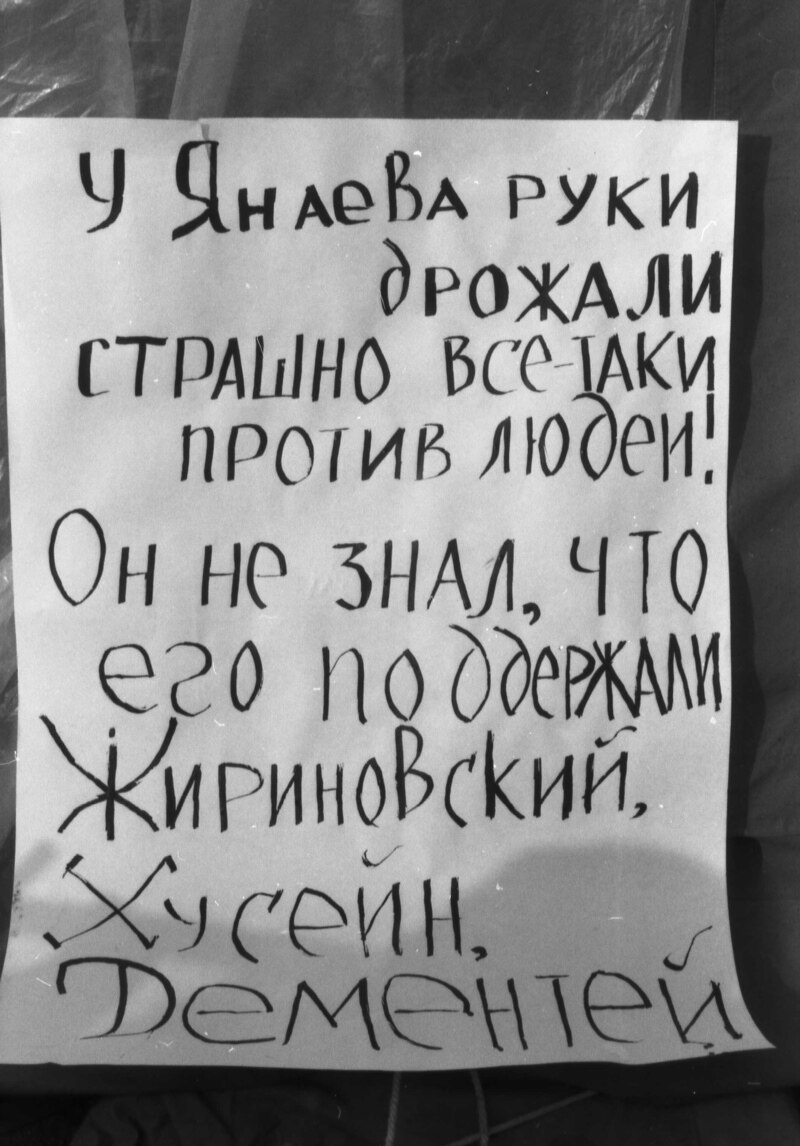 У Янаева руки
дрожали
страшно все-таки
против людей!
Он не знал, что
его поддержали
Жириновский,
Хусейн,
Дементей